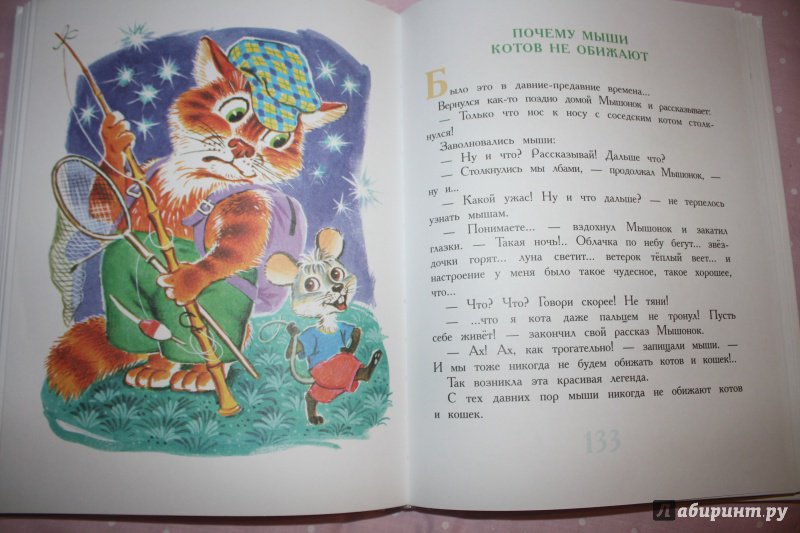 ПОЧЕМУ МЫШИ
КОТОВ НЕ ОБИЖАЮТ
Было это в давние-предавние времена...
Вернулся как-то поздно домой Мышонок и рассказывает:
— Только что нос к носу с соседским котом столк-
нулся!
Заволновались мыши:
— Ну и что? Рассказывай! Дальше что?
— Столкнулись мы лбами, — продолжал Мышонок, —
ну и...
— Какой ужас! Ну и что дальше? — не терпелось
узнать мышам.
— Понимаете... — вздохнул Мышонок и закатил
глазки. — Такая ночь!.. Облачка по небу бегут... звёз-
дочки горят... луна светит... ветерок тёплый веет... и
настроение у меня было такое чудесное, такое хорошее,
что...
— Что? Что? Говори скорее! Не тяни!
— ...что я кота даже пальцем не тронул! Пусть
себе живёт! — закончил свой рассказ Мышонок.
— Ах! Ах, как трогательно! — запищали мыши. —
И мы тоже никогда не будем обижать котов и кошек!..
Так возникла эта красивая легенда.
С тех давних пор мыши никогда не обижают котов
и кошек.
133
Лабиринт.ру